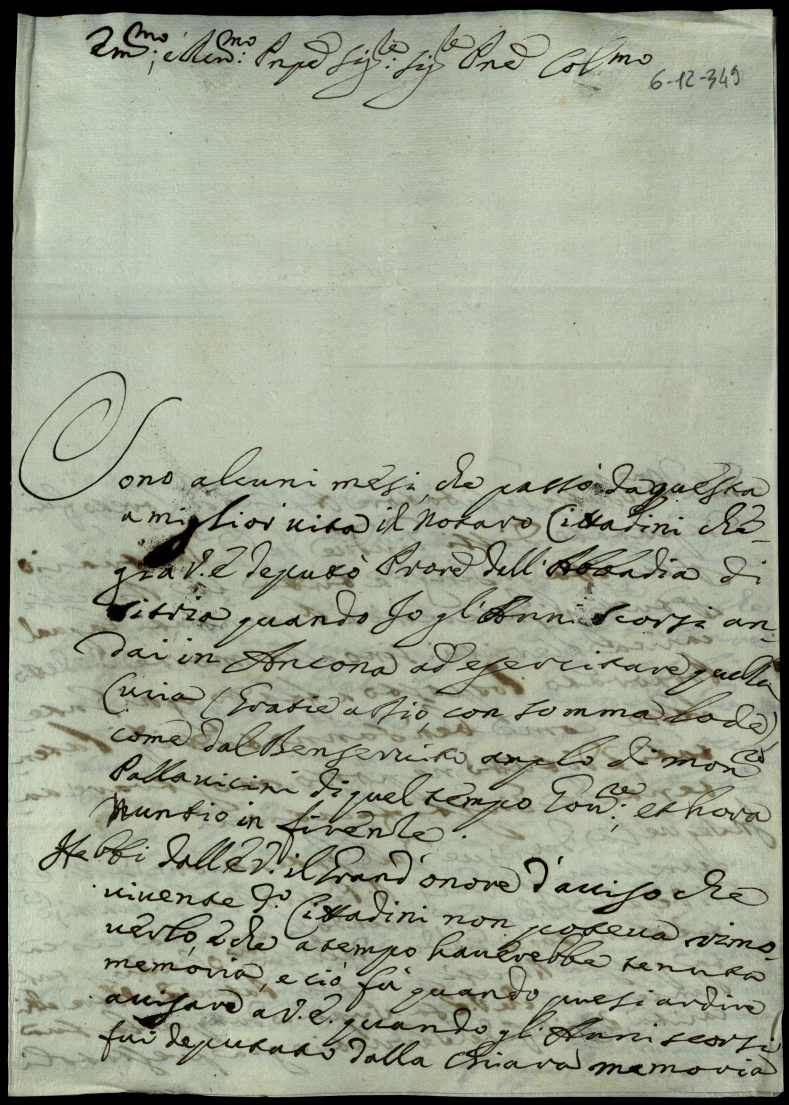 Em.mo; e Rev.mo: Pnpe Sig.re: Sig.re Pne Col.mo
6-12-349
Sono alcuni mesi, che passò da questa
a miglior vita il Notaro Cittadini che
già V. E. deputò Prore dell'Abbadia di
Sitria quando Jo gl'Anni scorsi an-
dai in Ancona ad esercitare quella
Curia (Gratie a Dio, con somma lode)
come dal Benservito amplo di mon.re
Pallavicini di quel tempo Gov.re; et hora
Nuntio in firenze.
Hebbi dall'E. V. il Grand'onore d'aviso che
vivente d.o Cittadini non poteva rimo-
verlo, e che a tempo haverebbe tenuta
memoria, e ciò fù quando presi ardire
avisare a V. E. quando gl'Anni scorsi
fui deputato dalla Chiara memoria